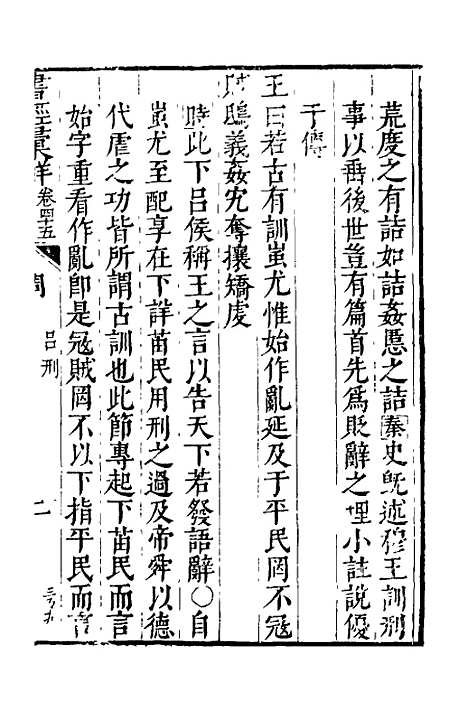 荒度之有詰如詰姦慝之詰秦史既述穆王訓刑
事以垂後世豈有篇首先爲貶辭之理小註說優
于傳
王曰若古有訓蚩尤惟始作亂延及于平民罔不寇
賊鴟義姦宄奪攘矯虔
時此下呂侯稱王之言以告天下若發語辭○自
蚩尤至配享在下詳苗民用刑之過及帝舜以德
代虐之功皆所謂古訓也此節專起下苗民而言
始字重看作亂卽是寇賊罔不以下指平民而言
書經彙解 卷四十五 周 呂刑 二